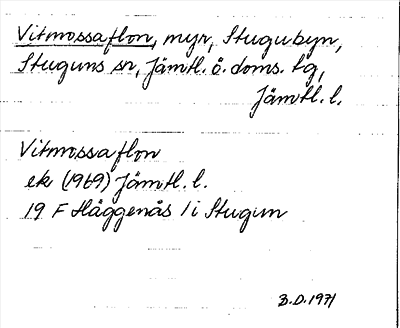 Vitmossaflon, myr, Stugubyn,
Stuguns sn, Jämtl. ö. doms. tg,
Jämtl. l.
Vitmossaflon
ek (1969) Jämtl. l.
19 F Häggenås 1 i Stugun
B.D. 1971